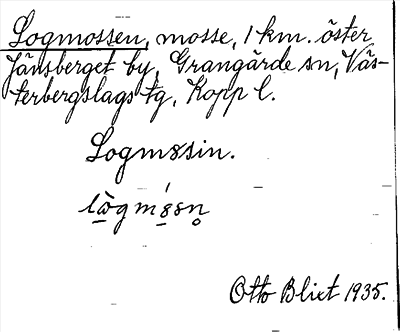 Logmossen, mosse, 1 km. öster
Jänsberget by, Grangärde sn, Väs-
terbergslags tg, Kopp l.
Logm8sin.
làgm8́sn̥
Otto Blixt 1935.